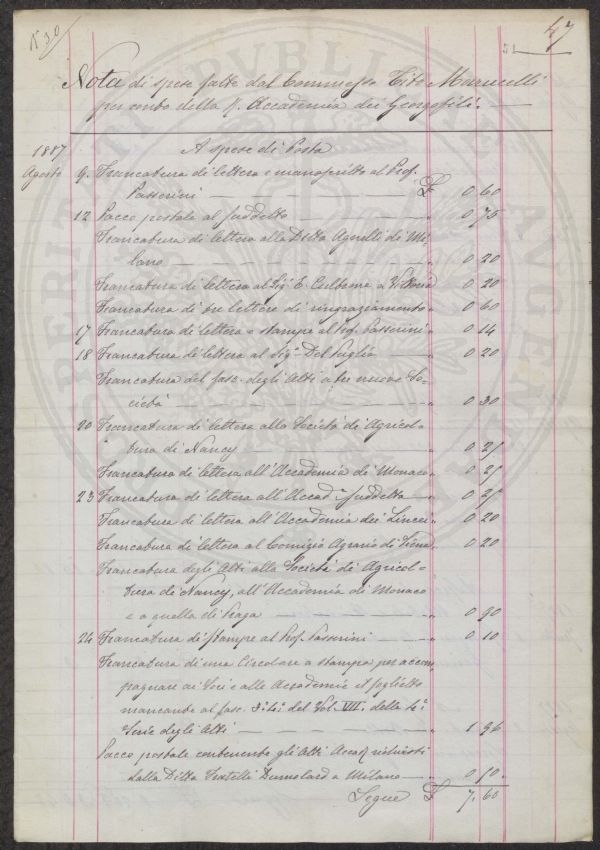 N. 30
47
Nota di spese fatte dal Commesso Tito Marucelli
per conto della R. Accademia dei Georgofili.
A spese di Posta
1887
Agosto 9. Francatura di lettera e manoscritto al Prof.
Passerini — £ 0 60
12 Pacco postale al suddetto — " 0 75
Francatura di lettera alla Ditta Agnelli di Mi-
lano — " 0 20
Francatura di lettera al Sig. E. a Vittoria 0 20
Francatura di tre lettere di ringraziamento " 0 60
17 Francatura di lettera e stampe al Prof. Passerini " 0 14
18 Francatura di lettera al Sig. Del Puglia — " 0 20
Francatura del fasc. degli Atti a tre nuove So-
cietà — " 0 30
20 Francatura di lettera alla Società di Agricol-
tura di Nancy — " 0 25
Francatura di lettera all'Accademia di Monaco " 0 25
23 Francatura di lettera all'Accad. Suddetta — " 0 25
Francatura di lettera all'Accademia dei Lincei " 0 20
Francatura di lettera al Comizio Agrario di Siena 0 20
Francatura degli Atti alla Società di Agricol-
tura di Nancy, all'Accademia di Monaco
e a quella di Praga — " 0 90
24 Francatura di stampe al Prof. Passerini — " 0 10
Francatura di una Circolare a stampa per accom
pagnare ai Soci e alle Accademie il foglietto
mancante al fasc. del Vol. VII. della 4ª
Serie degli Atti — " 1 96
Pacco postale contenente gli Atti Accad. richiesti
dalla Ditta Fratelli Dumolard a Milano — " 0 50
Segue £ 7. 60